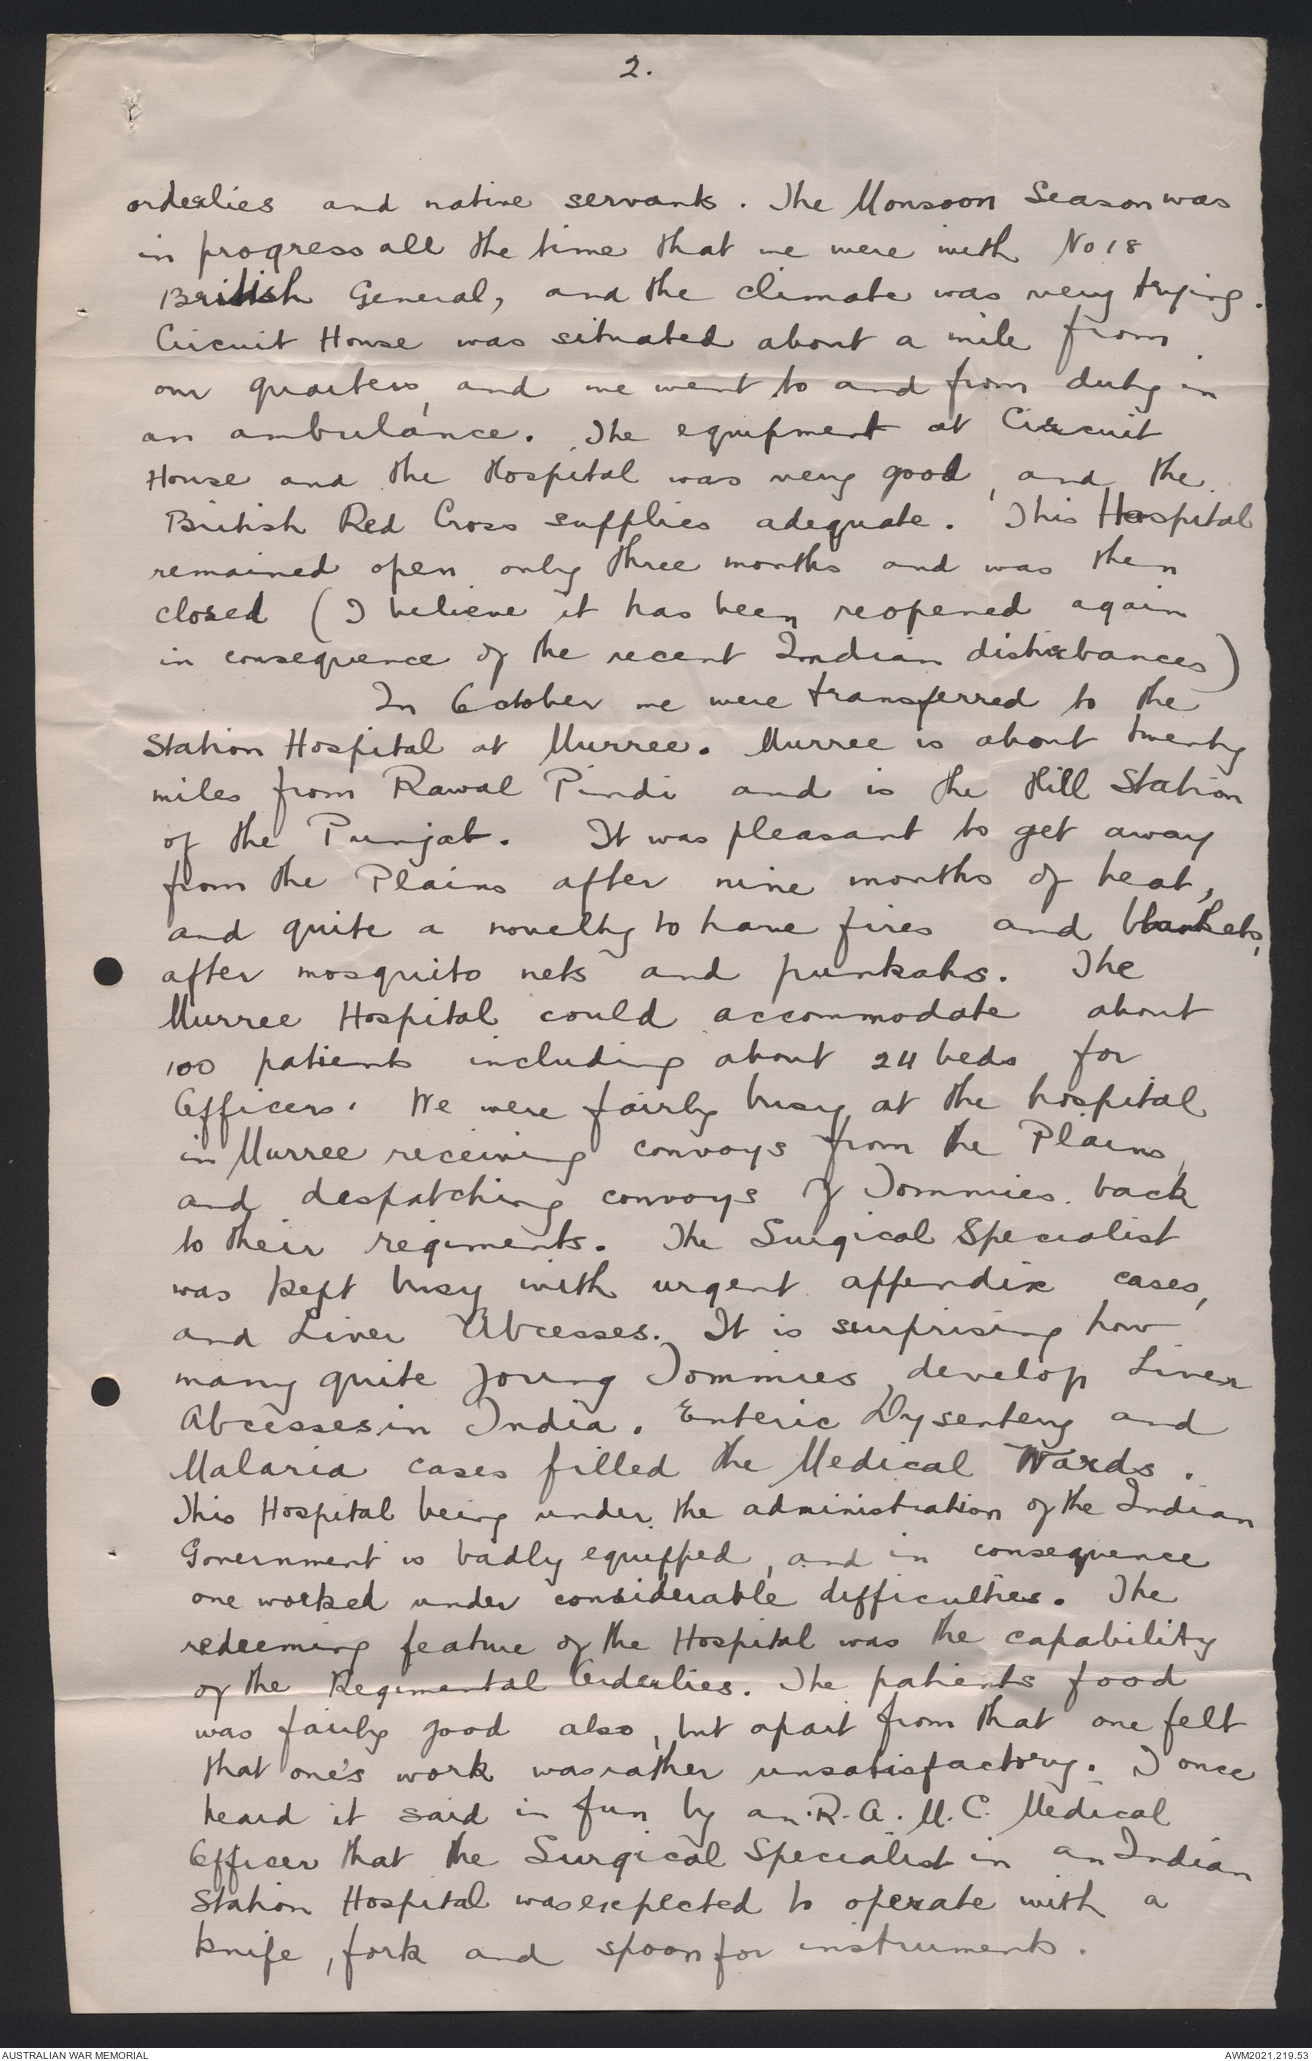 2.
orderlies and native servants. The Monsoon Season was
in progress all the time that we were with No 18
British General, and the climate was very trying.
Circuit House was situated about a mile from
our quarters, and we went to and from duty in
an ambulance. The equipment at Circuit
House and the Hospital was very good, and the
British Red Cross supplies adequate. This Hospital
remained open only three months and was then
closed (I believe it has been reopened again
in consequence of the recent Indian disturbances)
In October we were transferred to the
Station Hospital at Murree. Murree is about twenty
miles from Rawal Pindi and is the Hill Station
of the Punjab. It was pleasant to get away
from the Plains after nine months of heat,
and quite a novelty to have fires and blankets,
after mosquito nets and punkahs. The
Murree Hospital could accommodate about
100 patients including about 24 beds for
Officers. We were fairly busy at the hospital
in Murree receiving convoys from the Plains,
and despatching convoys of Tommies back
to their regiments. The Surgical Specialist
was kept busy with urgent appendix cases,
and Liver Abcesses. It is surprising how
many quite young Tommies, develop Liver
Abcesses in India. Enteric Dysentery and
Malaria cases filled the Medical Wards.
This Hospital being under the administration of the Indian
Government is badly equipped, and in consequence
one worked under considerable difficulties. The
redeeming feature of the Hospital was the capability
of the Regimental Orderlies. The patients food
was fairly good also, but apart from that one felt
that one's work was rather unsatisfactory. I once
heard it said in fun by an R.A.M.C. Medical
Officer that the Surgical Specialist in an Indian
Station Hospital was expected to operate with a
knife, fork and spoon for instruments.
AUSTRALIAN WAR MEMORIAL
AWM2021.219.53